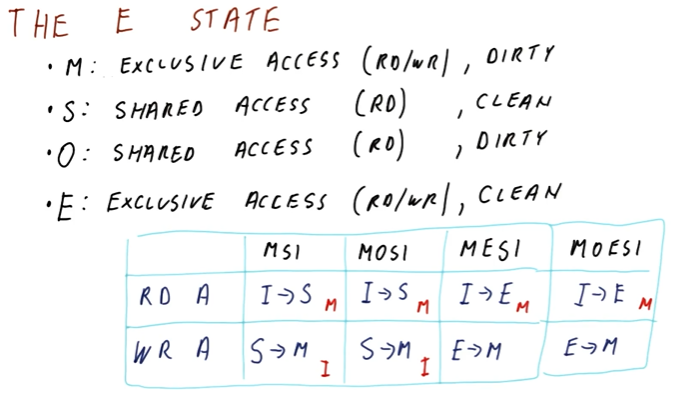 THE E STATE
• M: EXCLUSIVE ACCESS (RD/WR), DIRTY
• S: SHARED ACCESS (RD), CLEAN
• O: SHARED ACCESS (RD), DIRTY
• E: EXCLUSIVE ACCESS (RD/WR), CLEAN
MSI MOSI MESI MOESI
RD A I→S M I→S M I→E M I→E M
WR A S→M I S→M I E→M E→M